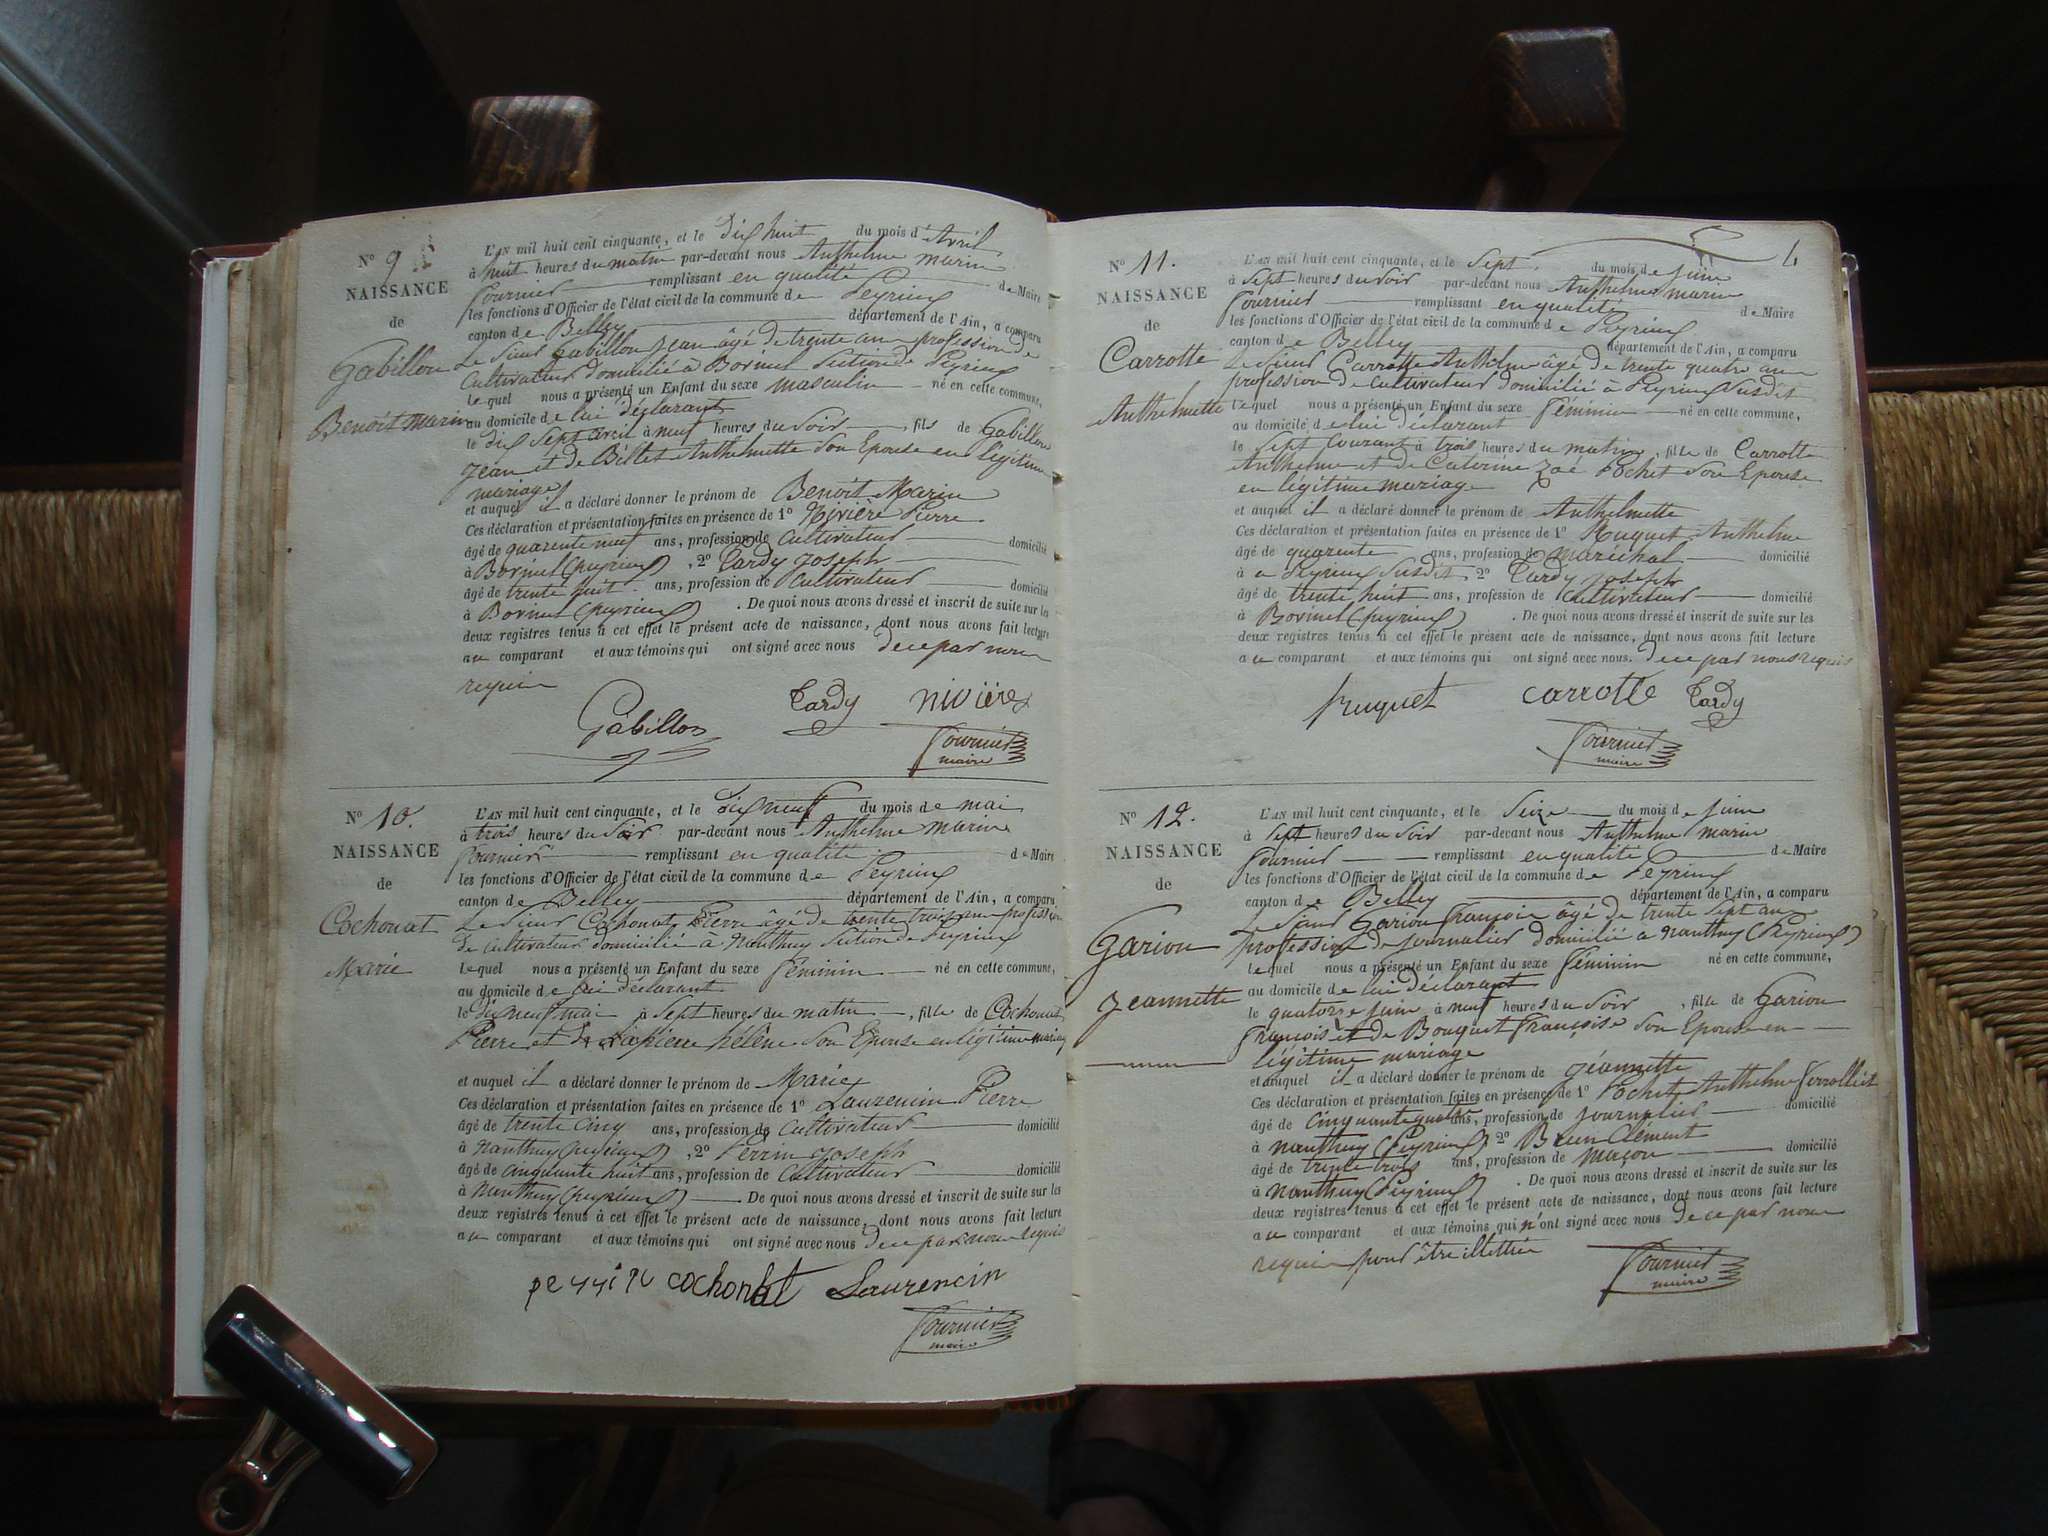 N° 9
NAISSANCE
de
Gabillon
Benoit Marin
L'AN mil huit cent cinquante, et le dix huit du mois d'Avril
à huit heures du matin par-devant nous Anthelme Marin
Fournier remplissant en qualité de Maire
les fonctions d'Officier de l'état civil de la commune de Peyrieux
canton de Belley département de l'Ain, a comparu
Le Sieur Gabillon Jean âgé de trente ans profession de
Cultivateur domicilié à Borinel Section de Peyrieux
lequel nous a présenté un Enfant du sexe masculin né en cette commune,
au domicile de lui déclarant
le dix sept avril à neuf heures du Soir, fils de Gabillon
Jean et de Billet Anthelmette son Epouse en légitime
mariage
et auquel il a déclaré donner le prénom de Benoit Marin
Ces déclaration et présentation faites en présence de 1° Nivière Pierre
âgé de quarente neuf ans, profession de Cultivateur domicilié
à Borinel (Peyrieux), 2° Tardy Joseph
âgé de trente huit ans, profession de Cultivateur domicilié
à Borinel (Peyrieux). De quoi nous avons dressé et inscrit de suite sur les
deux registres tenus à cet effet le présent acte de naissance, dont nous avons fait lecture
au comparant et aux témoins qui ont signé avec nous de ce par nous
requis
Gabillon Tardy nivière
Fournier
maire
N° 10.
NAISSANCE
de
Cochonat
Marie
L'AN mil huit cent cinquante, et le dix neuf du mois de mai
à trois heures du Soir par-devant nous Anthelme Marin
Fournier remplissant en qualité de Maire
les fonctions d'Officier de l'état civil de la commune de Peyrieux
canton de Belley département de l'Ain, a comparu
Le Sieur Cochonat Pierre âgé de trente trois ans profession
de cultivateur domicilié à Nanthuy Section de Peyrieux
lequel nous a présenté un Enfant du sexe féminin né en cette commune,
au domicile de lui déclarant
le dix neuf mai à Sept heures du matin, fille de Cochonat
Pierre et de Hélène son Epouse en légitime mariage
et auquel il a déclaré donner le prénom de Marie
Ces déclaration et présentation faites en présence de 1° Laurencin Pierre
âgé de trente cinq ans, profession de cultivateur domicilié
à Nanthuy (Peyrieux), 2° Perrin Joseph
âgé de cinquante huit ans, profession de Cultivateur domicilié
à Nanthuy (Peyrieux). De quoi nous avons dressé et inscrit de suite sur les
deux registres tenus à cet effet le présent acte de naissance, dont nous avons fait lecture
au comparant et aux témoins qui ont signé avec nous de ce par nous requis
cochonat Laurencin
Fournier
maire
N° 11.
NAISSANCE
de
Carrotte
Anthelmette
L'AN mil huit cent cinquante, et le Sept du mois de juin
à Sept heures du Soir par-devant nous Anthelme Marin
Fournier remplissant en qualité de Maire
les fonctions d'Officier de l'état civil de la commune de Peyrieux
canton de Belley département de l'Ain, a comparu
Le Sieur Carrotte Anthelme âgé de trente quatre ans
profession de Cultivateur domicilié à Peyrieux Susdit
lequel nous a présenté un Enfant du sexe féminin né en cette commune,
au domicile de lui déclarant
le Sept Courant à trois heures du matin, fille de Carrotte
Anthelme et de Caterine Zoé Pochet Son Epouse
en légitime mariage
et auquel il a déclaré donner le prénom de Anthelmette
Ces déclaration et présentation faites en présence de 1° Huguet Anthelme
âgé de quarente ans, profession de maréchal domicilié
à Peyrieux Susdit 2° Tardy Joseph
âgé de trente huit ans, profession de cultivateur domicilié
à Borinel (Peyrieux). De quoi nous avons dressé et inscrit de suite sur les
deux registres tenus à cet effet le présent acte de naissance, dont nous avons fait lecture
au comparant et aux témoins qui ont signé avec nous. de ce par nous requis
huguet carrotte Tardy
Fournier
maire
N° 12.
NAISSANCE
de
Garion
Jeannette
L'AN mil huit cent cinquante, et le Seize du mois de juin
à Sept heures du Soir par-devant nous Anthelme Marin
Fournier remplissant en qualité de Maire
les fonctions d'Officier de l'état civil de la commune de Peyrieux
canton de Belley département de l'Ain, a comparu
Le Sieur Garion François âgé de trente sept ans
profession de journalier domicilié à Nanthuy (Peyrieux)
lequel nous a présenté un Enfant du sexe féminin né en cette commune,
au domicile de lui déclarant
le quatorze juin à neuf heures du Soir, fille de Garion
François et de Bouquet Françoise son Epouse en
légitime mariage
et auquel il a déclaré donner le prénom de Jeannette
Ces déclaration et présentation faites en présence de 1° Pochet Anthelme
âgé de cinquante quatre ans, profession de journalier domicilié
à Nanthuy (Peyrieux) 2° Brun Clément
âgé de trente trois ans, profession de maçon domicilié
à Nanthuy (Peyrieux). De quoi nous avons dressé et inscrit de suite sur les
deux registres tenus à cet effet le présent acte de naissance, dont nous avons fait lecture
au comparant et aux témoins qui n'ont signé avec nous de ce par nous
requis pour être illettrés
Fournier
maire